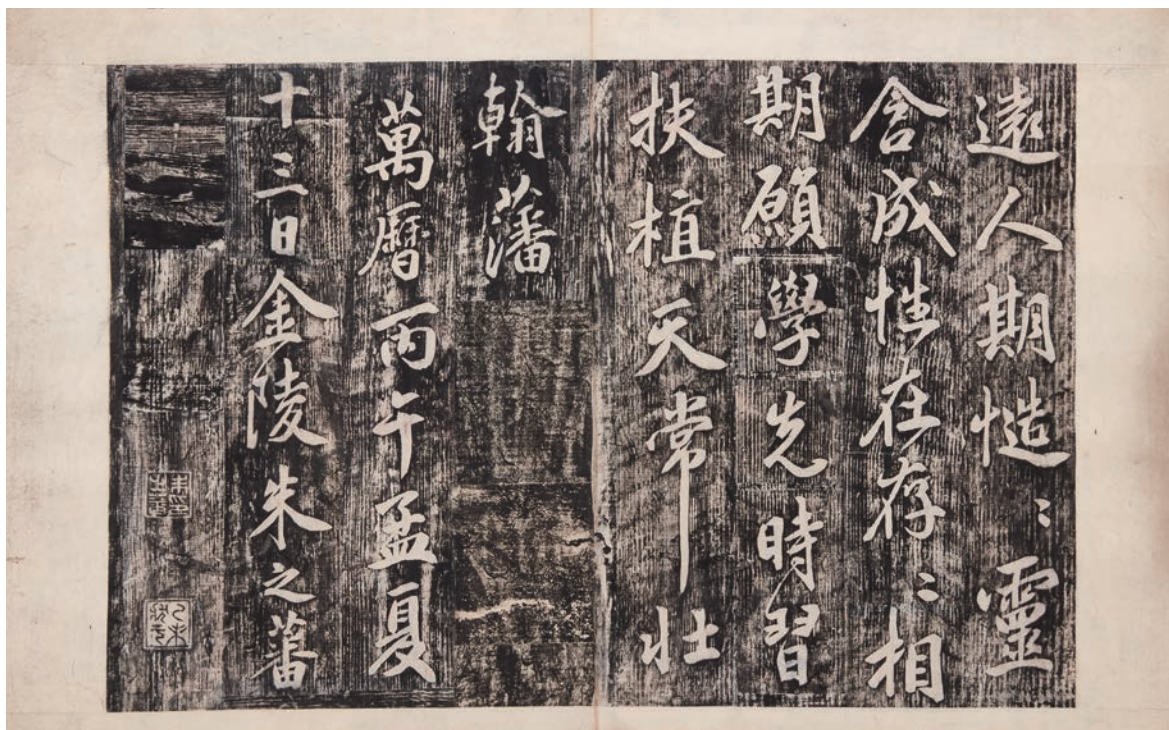 遠人期慥〻靈
含成性在存〻相
期願學先時習
扶植天常壯
翰藩
萬曆丙午孟夏
十三日金陵朱之蕃
乙未狀元